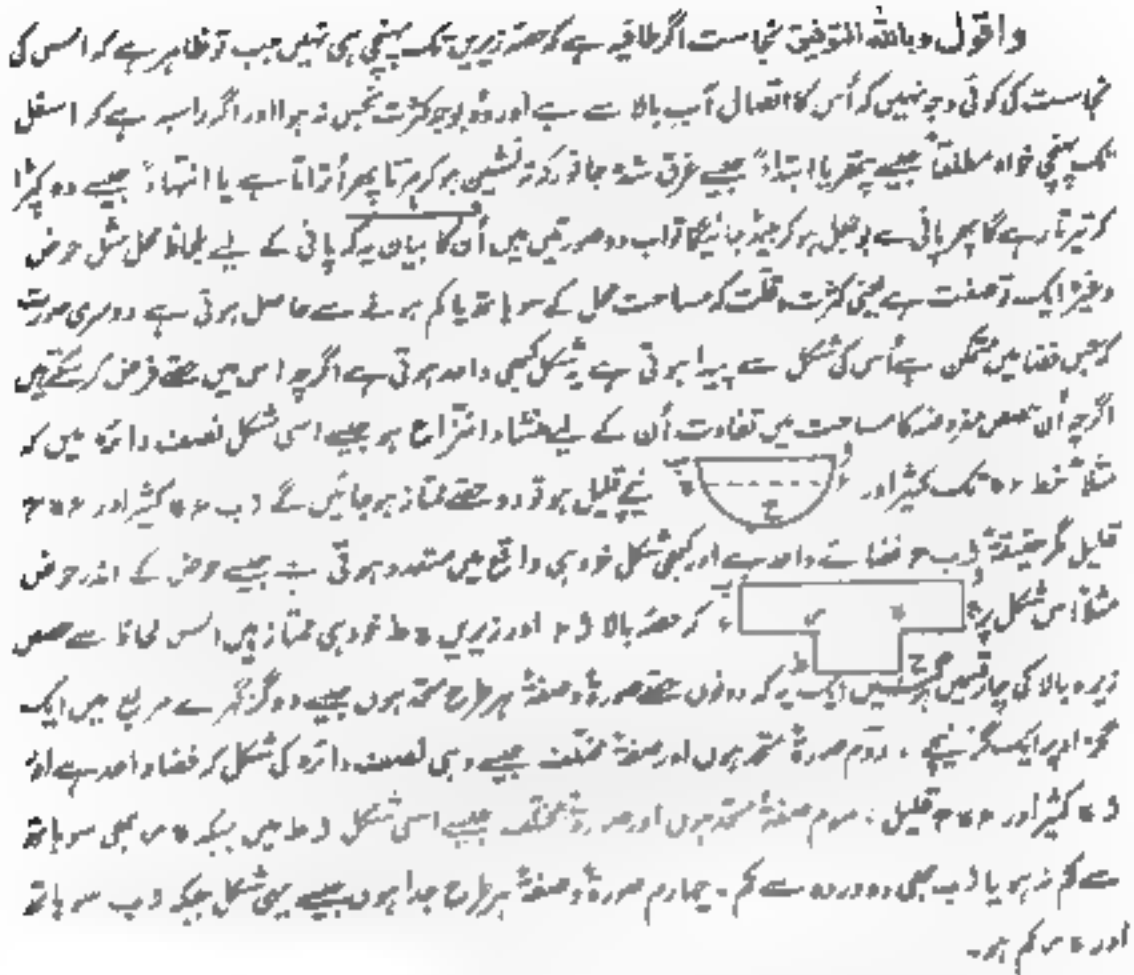 واقول وباللہ التوفیق نجاست اگر طافیہ ہے کہ حصّہ زیریں تک پہنچی ہی نہیں جب تو ظاہر ہے کہ اس کی
نجاست کی کوئی وجہ نہیں کہ اُس کا اتصال آبِ بالا سے ہے اور وُہ بوجہ کثرت نجس نہ ہوا اور اگر راسبہ ہے کہ اسفل
تک پہنچی خواہ مطلقاً جیسے پتھر یا ابتداءً جیسے غرق شدہ جانور کہ تہ نشین ہو کر مرتا پھر اُتراتا ہے یا انتہاءً جیسے وہ کپڑا
کہ تیرتا رہے گا پھر پانی سے بوجھل ہو کر بیٹھ جائیگا تو اب دو صورتیں ہیں اُن کا بیان یہ کہ پانی کے لیے بلحاظ محل مثل حوض
وغیرہ ایک تو صفت ہے یعنی کثرت وقلّت کہ مساحت محل کے سو ہاتھ یا کم ہونے سے حاصل ہوتی ہے دوسری صورت
کہ جس فضا میں متمکن ہے اُس کی شکل سے پیدا ہوتی ہے یہ شکل کبھی واحد ہوتی ہے اگرچہ اس میں حصّے فرض کر سکتے ہیں
اگرچہ اُن حصص مفروضہ کا مساحت میں تفاوت اُن کے لیے منشاء انتزاع ہو جیسے اسی شکل نصف دائرہ میں کہ
مثلاً خط ء ہ تک کثیر اور نیچے قلیل ہو تو دو حصّے ممتاز ہو جائیں گے ا ب ء ہ کثیر اور ء ہ ح
قلیل مگر حقیقۃً ا ب ح فضائے واحد ہے اور کبھی شکل خود ہی واقع میں متعدد ہوتی ہے جیسے حوض کے اندر حوض
مثلاً اس شکل پر کہ حصّہ بالا ا ء اور زیریں ہ ط خود ہی ممتاز ہیں اس لحاظ سے حصص
زیر و بالا کی چار قسمیں ہیں ایک یہ کہ دونوں حصّے صورۃً وصفۃً ہر طرح متحد ہوں جیسے دو گز گہرے مربع میں ایک
گز اوپر ایک گز نیچے ، دوم صورۃً متحد ہوں اور صفۃً مختلف جیسے وہی نصف دائرہ کی شکل کہ فضا واحد ہے اور
ا ہ کثیر اور ء ہ ح قلیل ، سوم صفۃً متحد ہوں اور صورۃً مختلف جیسے اسی شکل ا ط میں جبکہ ہ س بھی سو ہاتھ
سے کم نہ ہو یا ا ب بھی دہ در دہ سے کم ۔ چہارم صورۃً وصفۃً ہر طرح جدا ہوں جیسے یہی شکل جبکہ ا ب سو ہاتھ
اور ہ س کم ہو۔